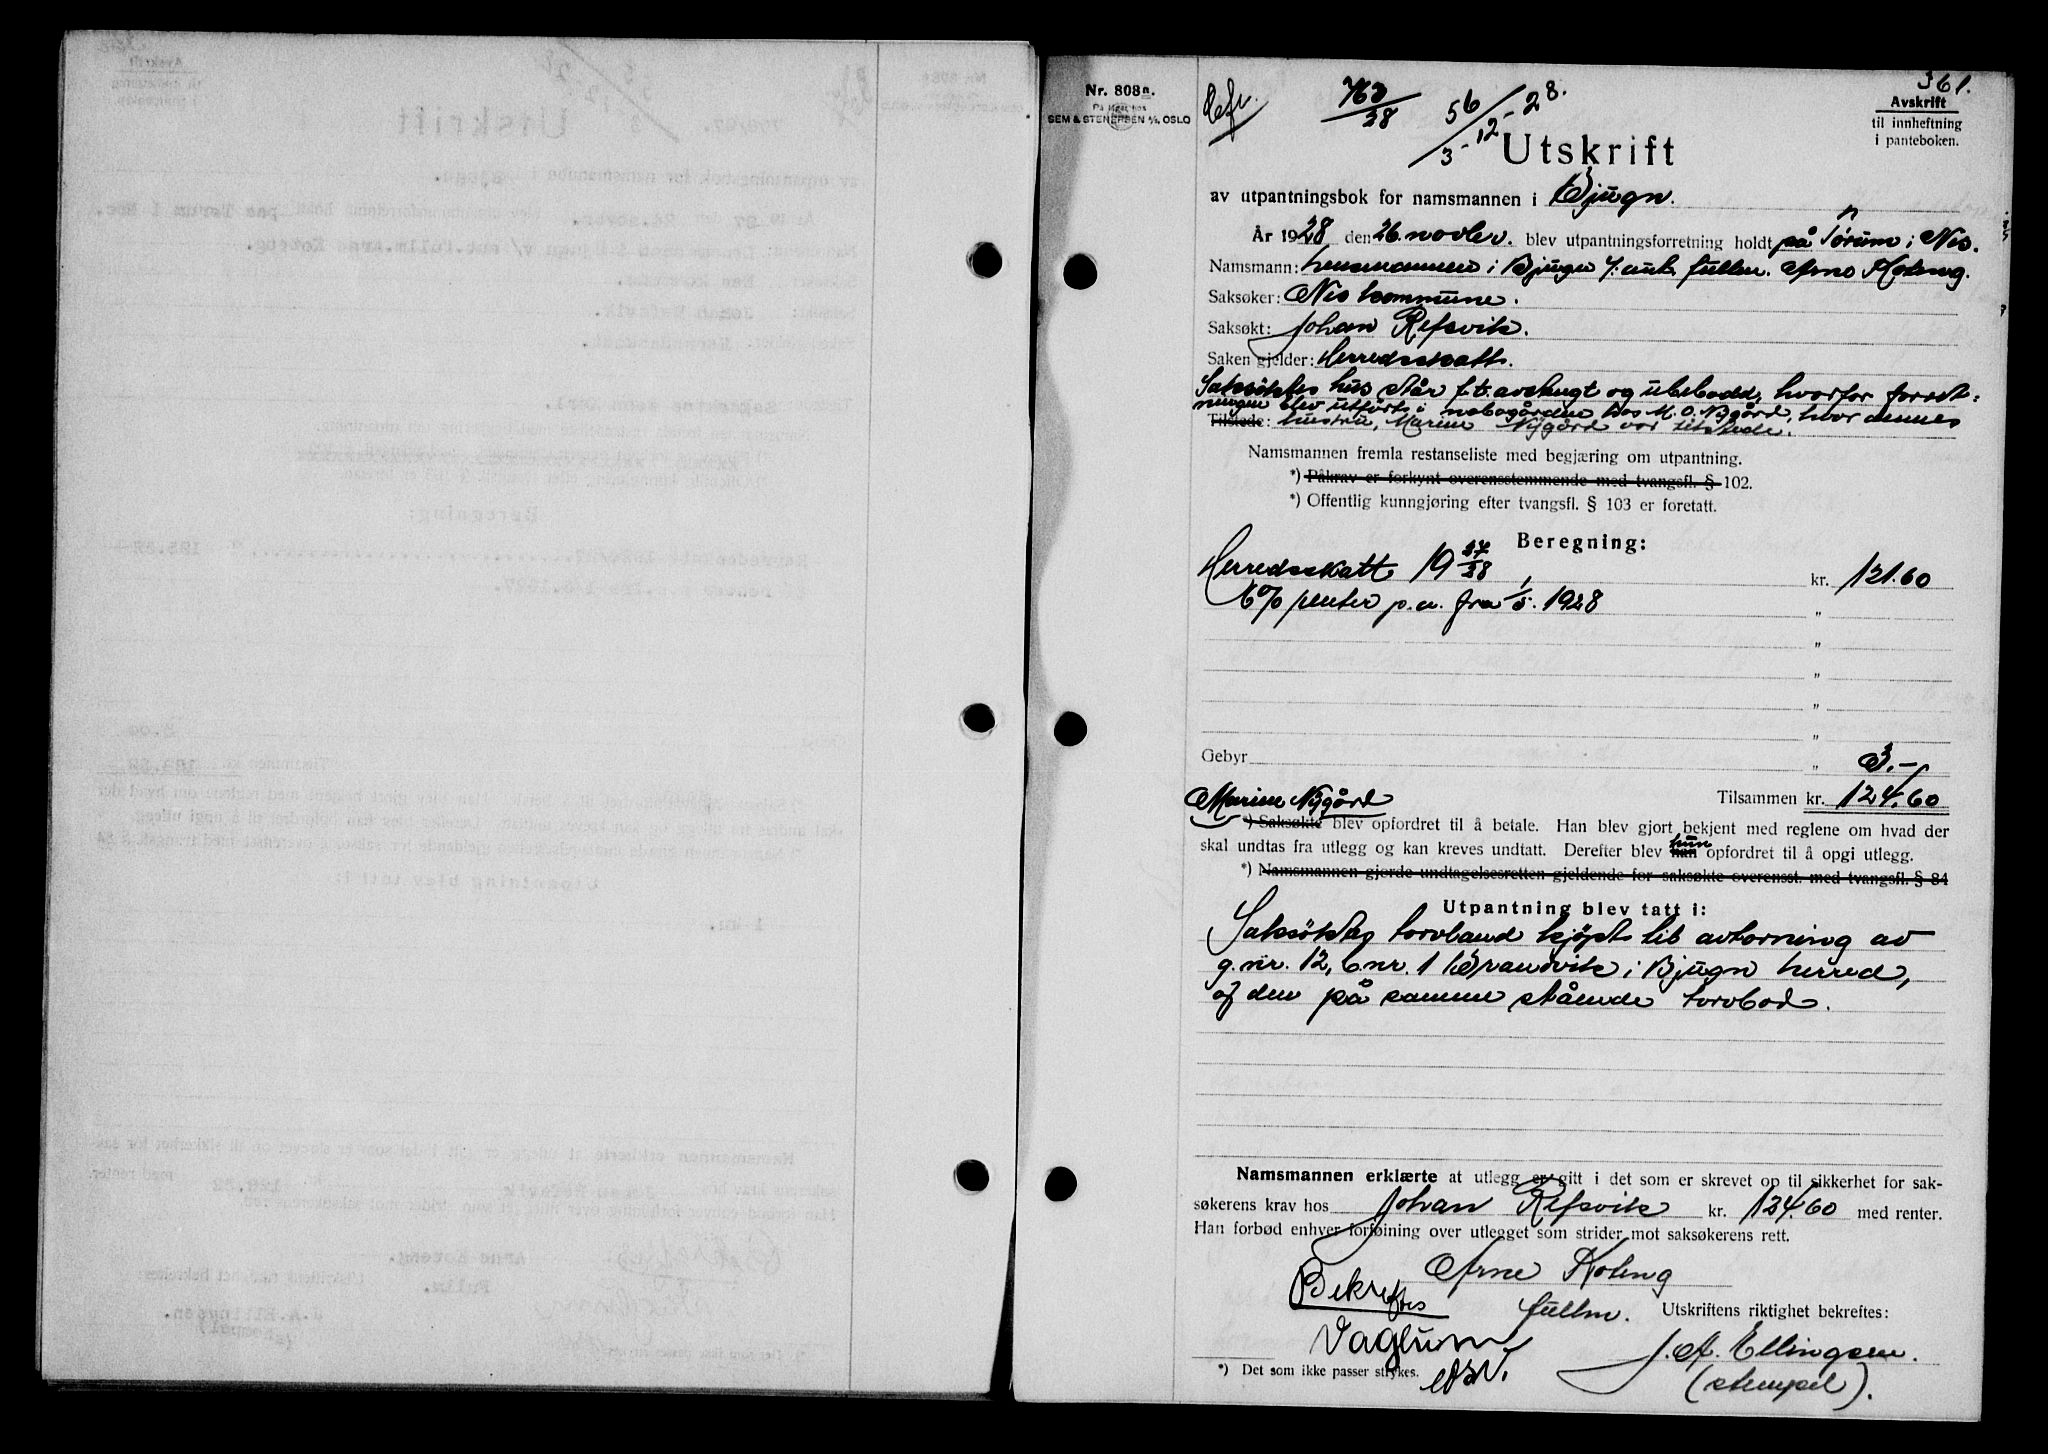 361.
Nr. 808a.
På lager hos
SEM & STENERSEN A/S, OSLO
763/28
56/3-12-28.
Avskrift
til innheftning
i panteboken.
Utskrift
av utpantningsbok for namsmannen i Bjugn.
År 1928 den 26. novbr. blev utpantningsforretning holdt på Tørum i Nes.
Namsmann: Lensmannen i Bjugn v. aut. fullm. Arne Koteng.
Saksøker: Nes kommune.
Saksøkt: Johan Refsvik.
Saken gjelder: Herredsskatt.
Saksøktes hus står f.t. avstengt og ubebodd, hvorfor forret-
ningen blev utført i nabogården hos M. O. Nygård, hvor dennes
Tilstede: hustru, Marine Nygård var tilstede.
Namsmannen fremla restanseliste med begjæring om utpantning.
*) Påkrav er forkynt overensstemmende med tvangsfl. § 102.
*) Offentlig kunngjøring efter tvangsfl. § 103 er foretatt.
Beregning:
Herredsskatt 19 27/28 kr. 121.60
6% renter p.a. fra 1/5. 1928 "
"
"
"
"
Gebyr " 3.-
Tilsammen kr. 124.60
Marine Nygård
*) Saksøkte blev opfordret til å betale. Han blev gjort bekjent med reglene om hvad der
skal undtas fra utlegg og kan kreves undtatt. Derefter blev han hun opfordret til å opgi utlegg.
*) Namsmannen gjorde undtagelsesretten gjeldende for saksøkte overensst. med tvangsfl. § 84
Utpantning blev tatt i:
Saksøktes torvland kjøpt til avtorvning av
g.nr. 12, b.nr. 1 Brandvik i Bjugn herred,
og den på samme stående torvbod.
Namsmannen erklærte at utlegg er gitt i det som er skrevet op til sikkerhet for sak-
søkerens krav hos Johan Refsvik kr. 124.60 med renter.
Han forbød enhver forføining over utlegget som strider mot saksøkerens rett.
Arne Koteng
Bekreftes
fullm. Utskriftens riktighet bekreftes:
Vaglum
J. A. Ellingsen.
*) Det som ikke passer strykes.
(stempel).